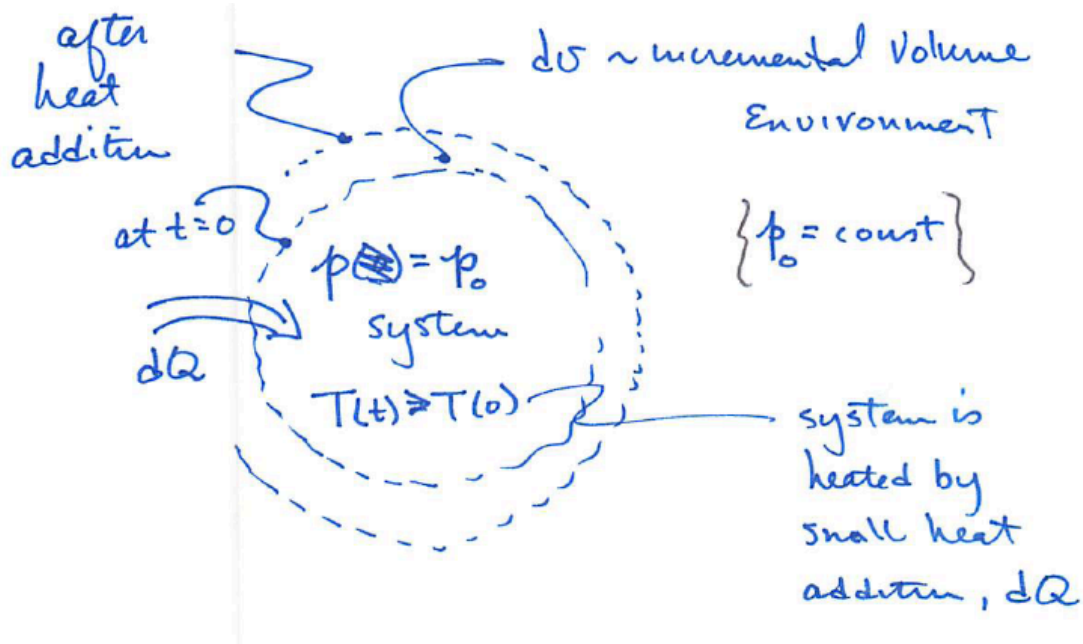 after
heat
addition
dv ~ incremental Volume
Environment
at t=0
p = p₀
{p₀ = const}
system
dQ
T(t) ≥ T(0)
system is
heated by
small heat
addition, dQ